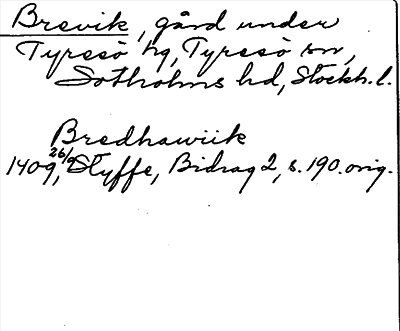 Brevik, gård under
Tyresö hg, Tyresö sn,
Sotholms hd, Stockh. l.
Bredhawiik
1409 26/9, Styffe, Bidrag 2, s. 190. orig.